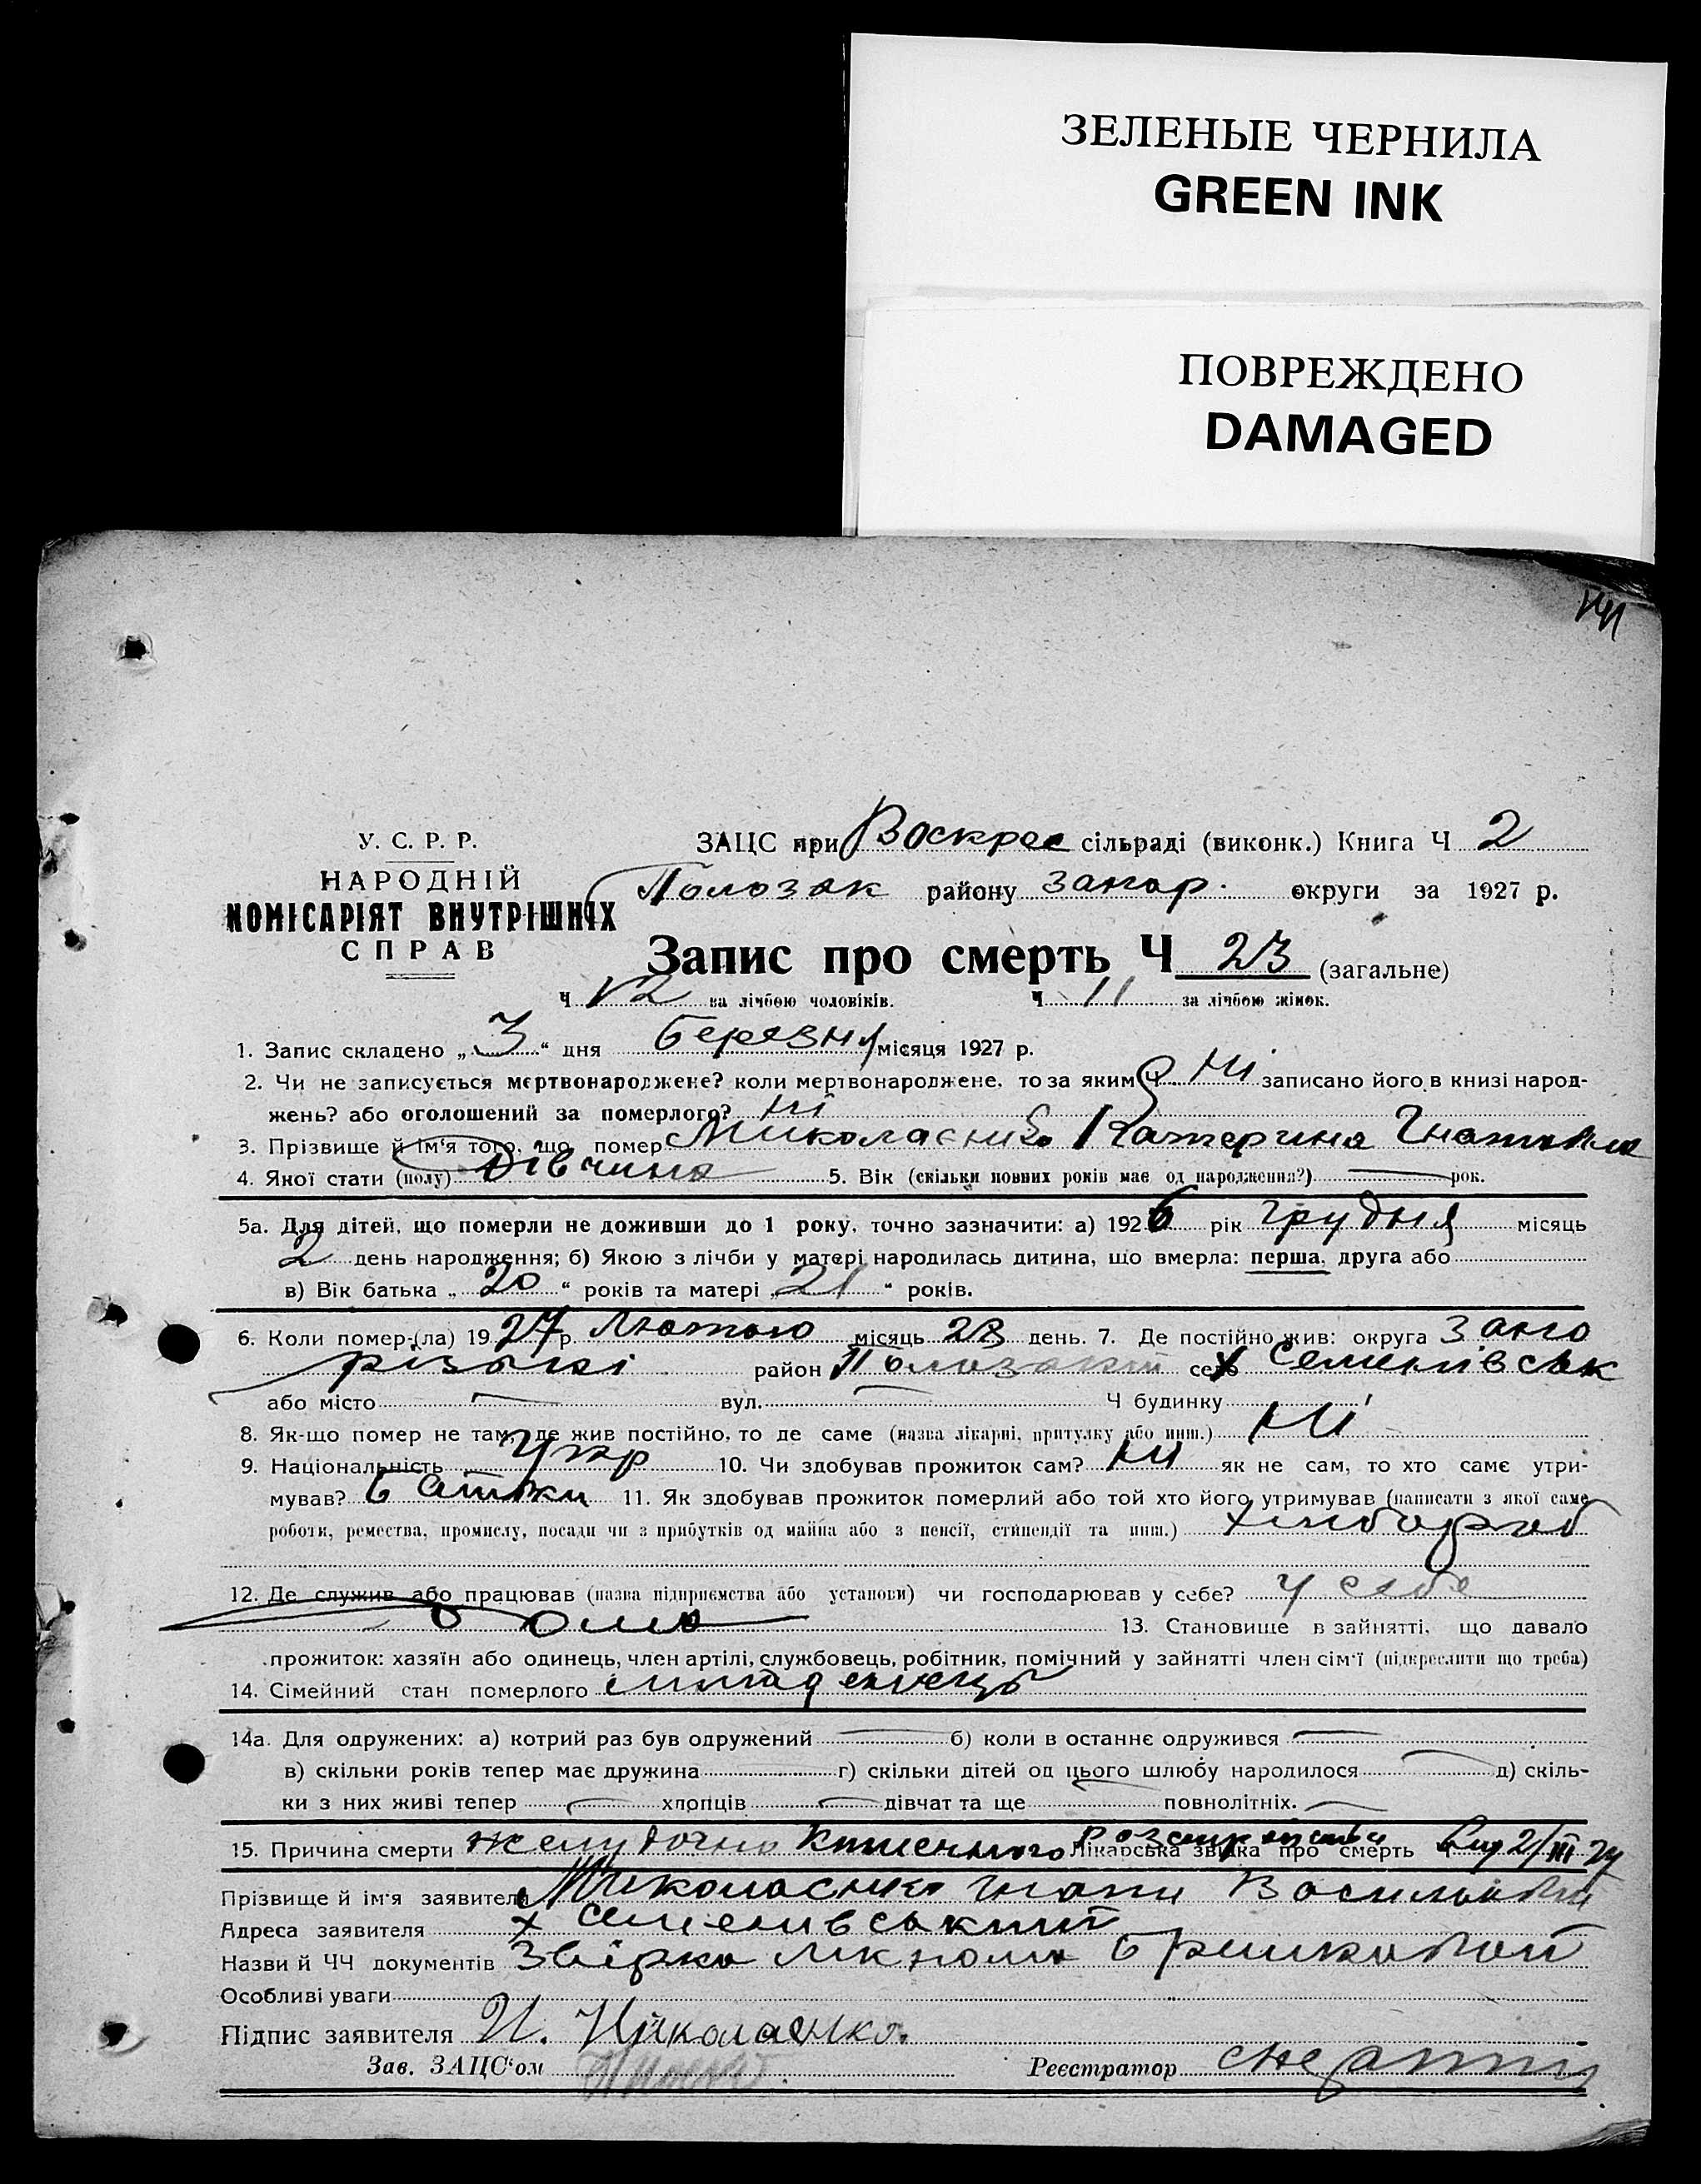 ЗЕЛЕНЫЕ ЧЕРНИЛА
GREEN INK
ПОВРЕЖДЕНО
DAMAGED
У. С. Р. Р.
НАРОДНІЙ
КОМІСАРІЯТ ВНУТРІШНІХ
СПРАВ
ЗАЦС при Воскрес сільраді (виконк.) Книга Ч 2
Пологзак району Запор. округи за 1927 р.
Запис про смерть Ч 23 (загальне)
Ч 12 за лічбою чоловіків. Ч 11 за лічбою жінок.
1. Запис складено „ 3 “ дня березня місяця 1927 р.
2. Чи не записується мертвонароджене? коли мертвонароджене, то за яким Ч ні записано його в книзі народ-
жень? або оголошений за померлого? ні
3. Прізвище й ім‘я того, що помер Миколаєнко Катерина Гнатовна
4. Якої стати (полу) Дівчина 5. Вік (скільки повних років має од народження?) рок.
5а. Для дітей, що померли не доживши до 1 року, точно зазначити: а) 1926 рік грудня місяць
2 день народження; б) Якою з лічби у матері народилась дитина, що вмерла: перша, друга або
в) Вік батька „ 20 “ років та матері „ 21 “ років.
6. Коли помер-(ла) 1927 р. Лютого місяць 28 день. 7. Де постійно жив: округа Запо
різькі район село х Семенівськ
або місто вул. Ч будинку
8. Як-що помер не там, де жив постійно, то де саме (назва лікарні, притулку або инш.) ні
9. Національність Укр 10. Чи здобував прожиток сам? ні як не сам, то хто саме утри-
мував? Батьки 11. Як здобував прожиток померлий або той хто його утримував (написати з якої саме
роботи, ремества, промислу, посади чи з прибутків од майна або з пенсії, стипендії та инш.) хлібороб
12. Де служив або працював (назва підприємства або установи) чи господарював у себе? у себе
дома 13. Становище в зайнятті, що давало
прожиток: хазяїн або одинець, член артілі, службовець, робітник, помічний у зайнятті член сім‘ї (підкреслити що треба)
14. Сімейний стан померлого младенець
14а. Для одружених: а) котрий раз був одружений б) коли в останнє одружився
в) скільки років тепер має дружина г) скільки дітей од цього шлюбу народилося д) скіль-
ки з них живі тепер хлопців дівчат та ще повнолітніх.
15. Причина смерти желудочно кишечного Лікарська звідка про смерть Ч
Прізвище й ім‘я заявителя Миколаєнко Гнат Васильович
Адреса заявителя х Семенивський
Назви й ЧЧ документів
Особливі уваги
Підпис заявителя И. Николаенко.
Зав. ЗАЦС‘ом Реєстратор